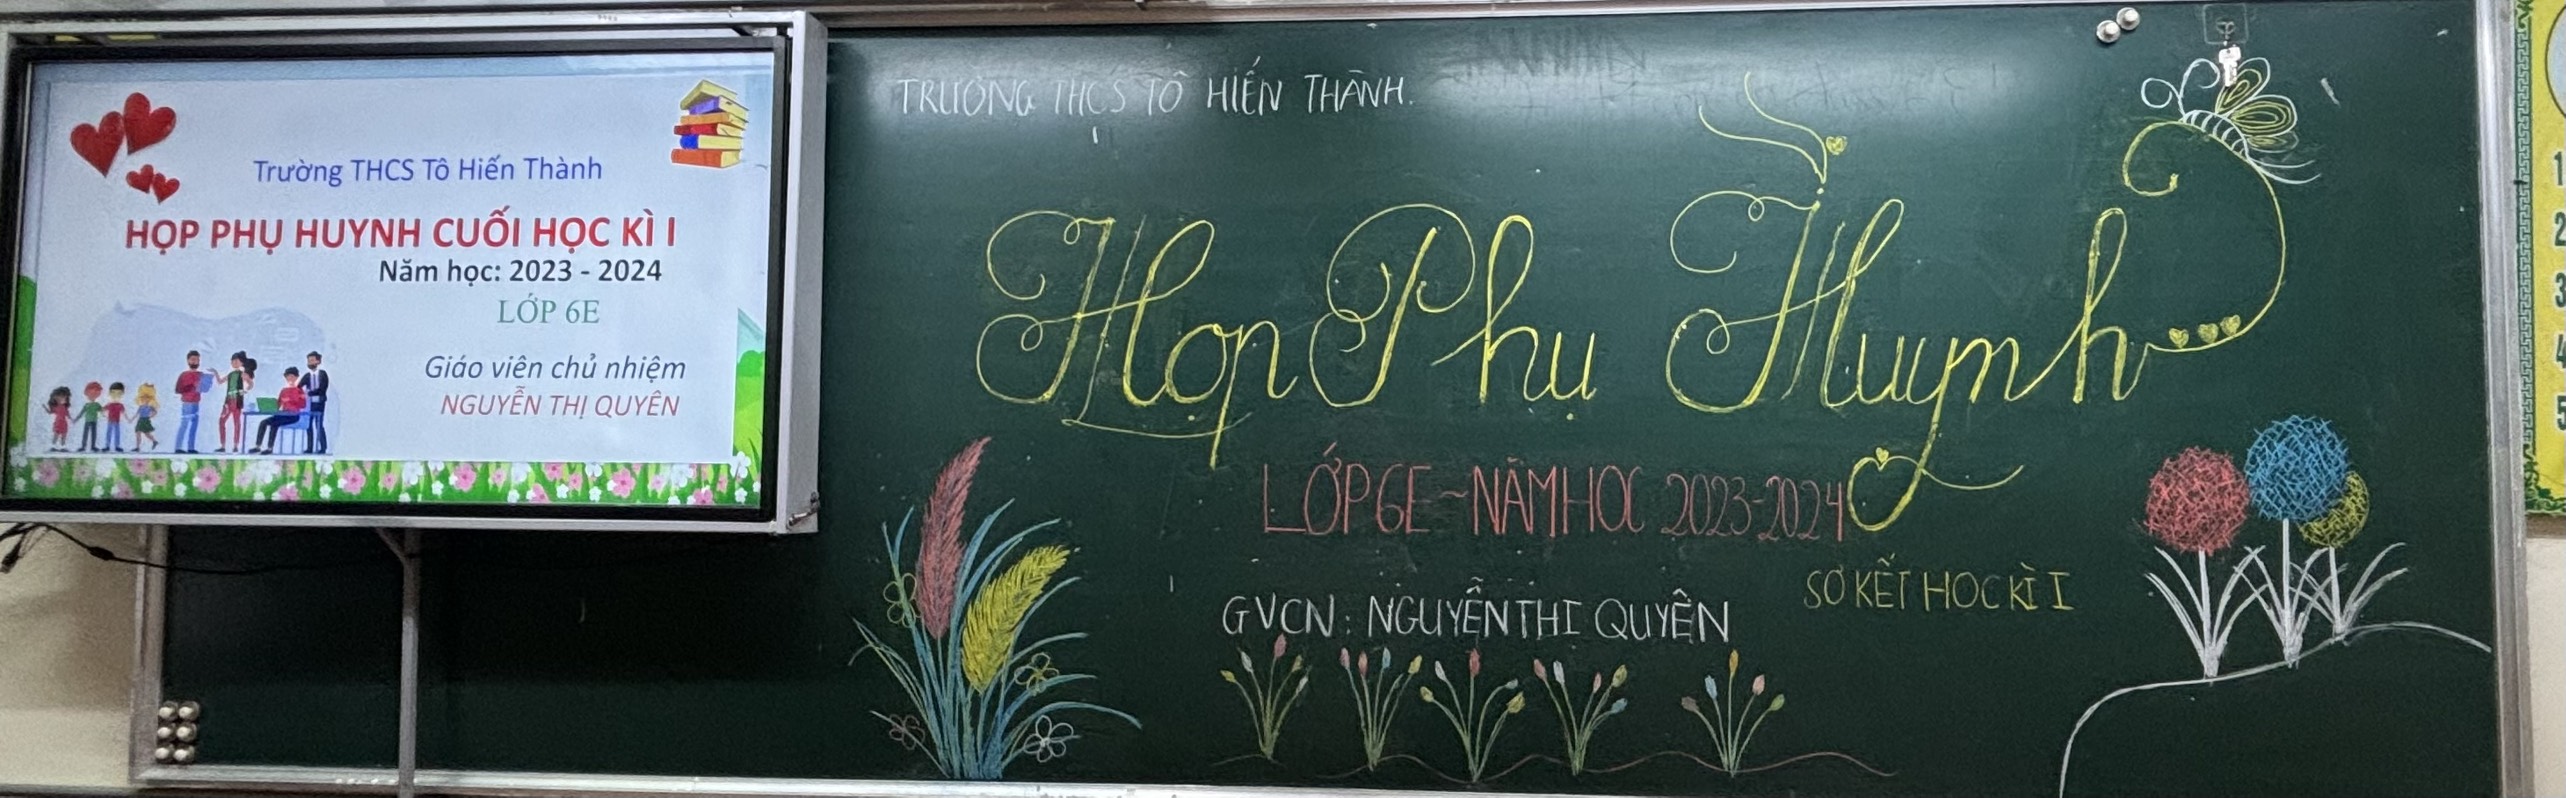 Trường THCS Tô Hiến Thành
HỌP PHỤ HUYNH CUỐI HỌC KÌ I
Năm học: 2023 - 2024
LỚP 6E
Giáo viên chủ nhiệm
NGUYỄN THỊ QUYÊN
TRƯỜNG THCS TÔ HIẾN THÀNH.
Họp Phụ Huynh
LỚP 6E - NĂM HỌC 2023-2024
SƠ KẾT HỌC KÌ I
GVCN: NGUYỄN THỊ QUYÊN
1
2
3
4
5